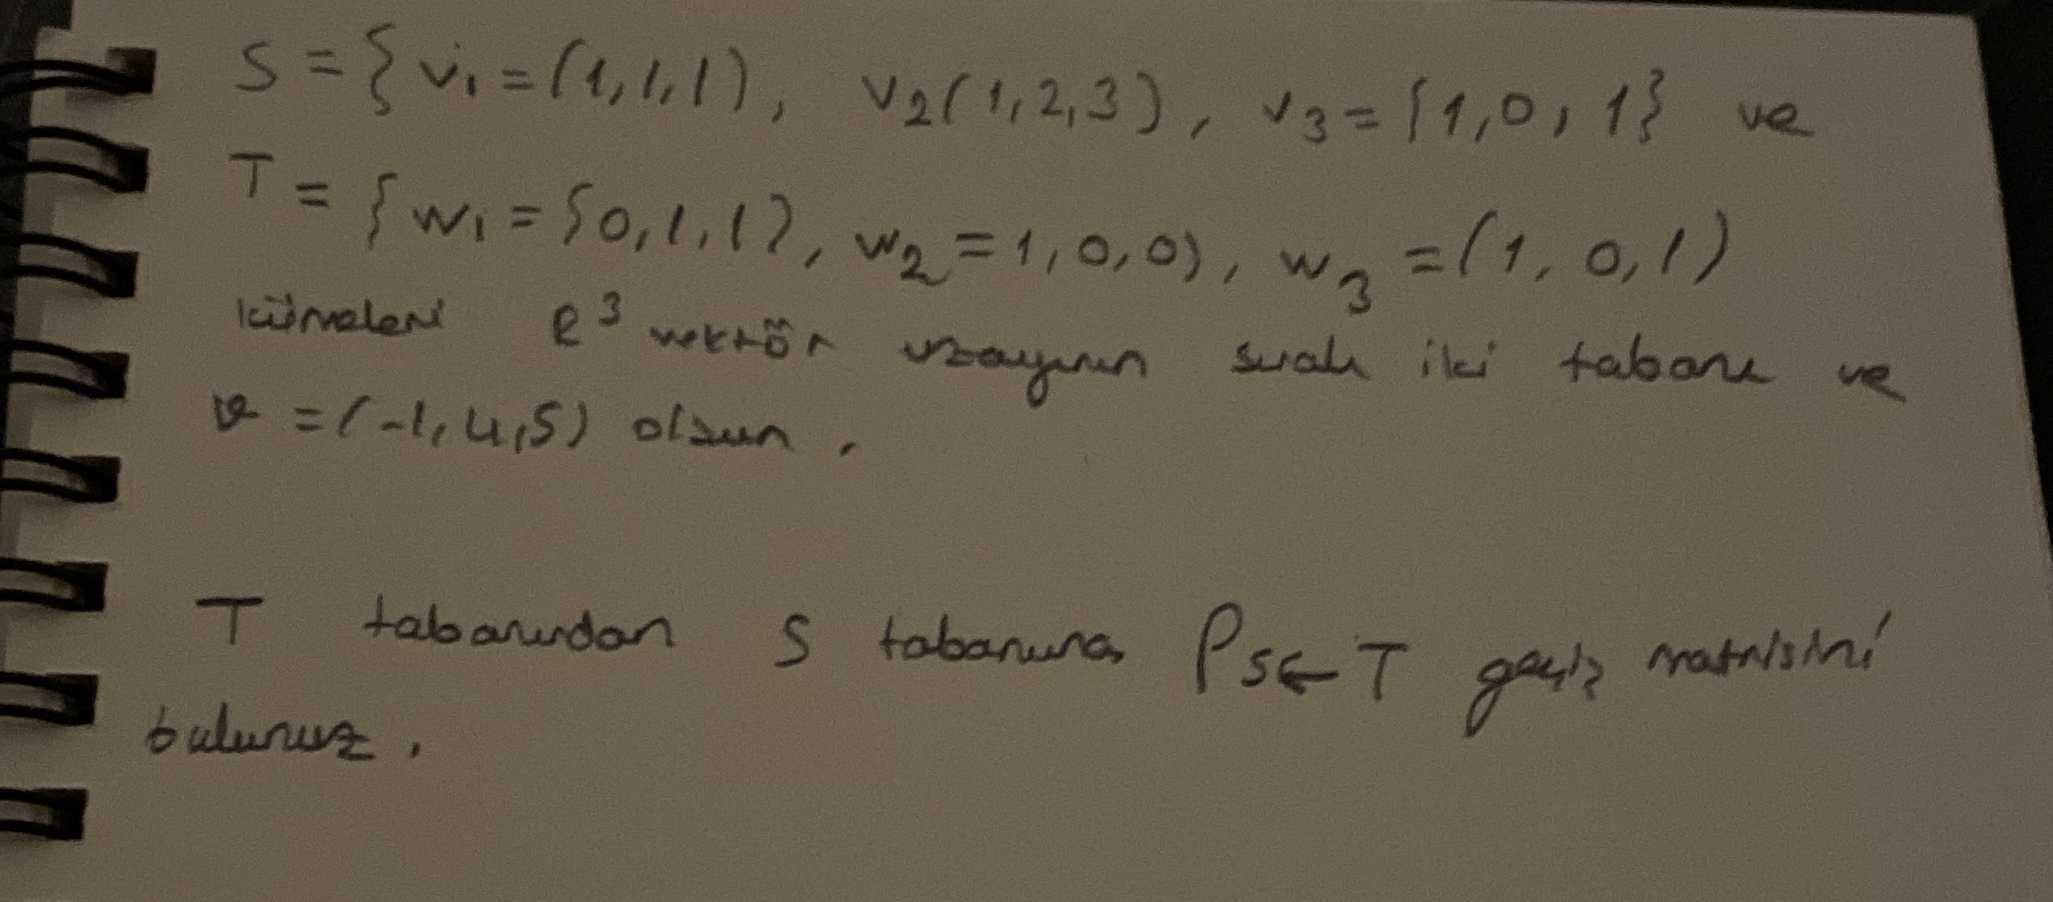 S = { v₁ = (1,1,1), v₂(1,2,3), v₃ = {1,0,1} ve
T = { w₁ = {0,1,1), w₂ = 1,0,0), w₃ = (1,0,1)
kümeleri R³ vektör uzayının sıralı iki tabanı ve
v = (-1,4,5) olsun.
T tabanından S tabanına P S←T geçiş matrisini
bulunuz.